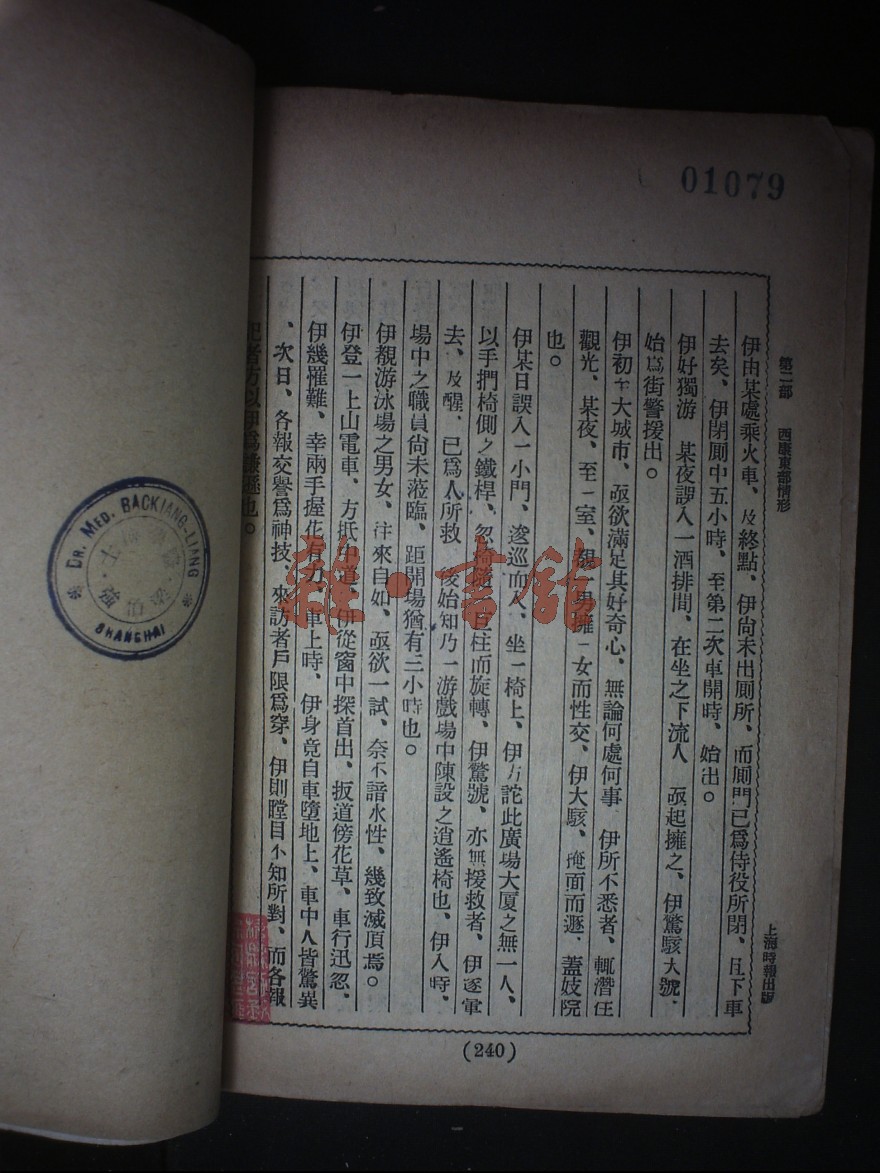 01079
第二部 西康東部情形
上海時報出版
伊由某處乘火車、及終點、伊尚未出厠所、而厠門已爲侍役所閉、且下車
去矣、伊閉厠中五小時、至第二次車開時、始出。
伊好獨游 某夜誤入一酒排間、在坐之下流人 亟起擁之、伊驚駭大號、
始爲街警援出。
伊初至大城市、亟欲滿足其好奇心、無論何處何事 伊所不悉者、輒潛往
觀光、某夜、至一室、覩一男擁一女而性交、伊大駭、掩面而遯、蓋妓院
也。
伊某日誤入一小門、逡巡而入、坐一椅上、伊方詫此廣場大厦之無一人、
以手捫椅側之鐵桿、忽椅隨一巨柱而旋轉、伊驚號、亦無援救者、伊遂暈
去、及醒、已爲人所救 始知乃一游戲場中陳設之逍遙椅也、伊入時、
場中之職員尚未蒞臨、距開場猶有三小時也。
伊覩游泳場之男女、往來自如、亟欲一試、奈不諳水性、幾致滅頂焉。
伊登一上山電車、方抵中道 伊從窗中探首出、扳道傍花草、車行迅忽、
伊幾罹難、幸兩手握花有力 車上時、伊身竟自車墮地上、車中人皆驚異
、次日、各報交譽爲神技、來訪者戶限爲穿、伊則瞠目不知所對、而各報
記者方以伊爲謙遜也。
(240)
DR. MED. BACKIANG-LIANG
SHANGHAI
雜·書館